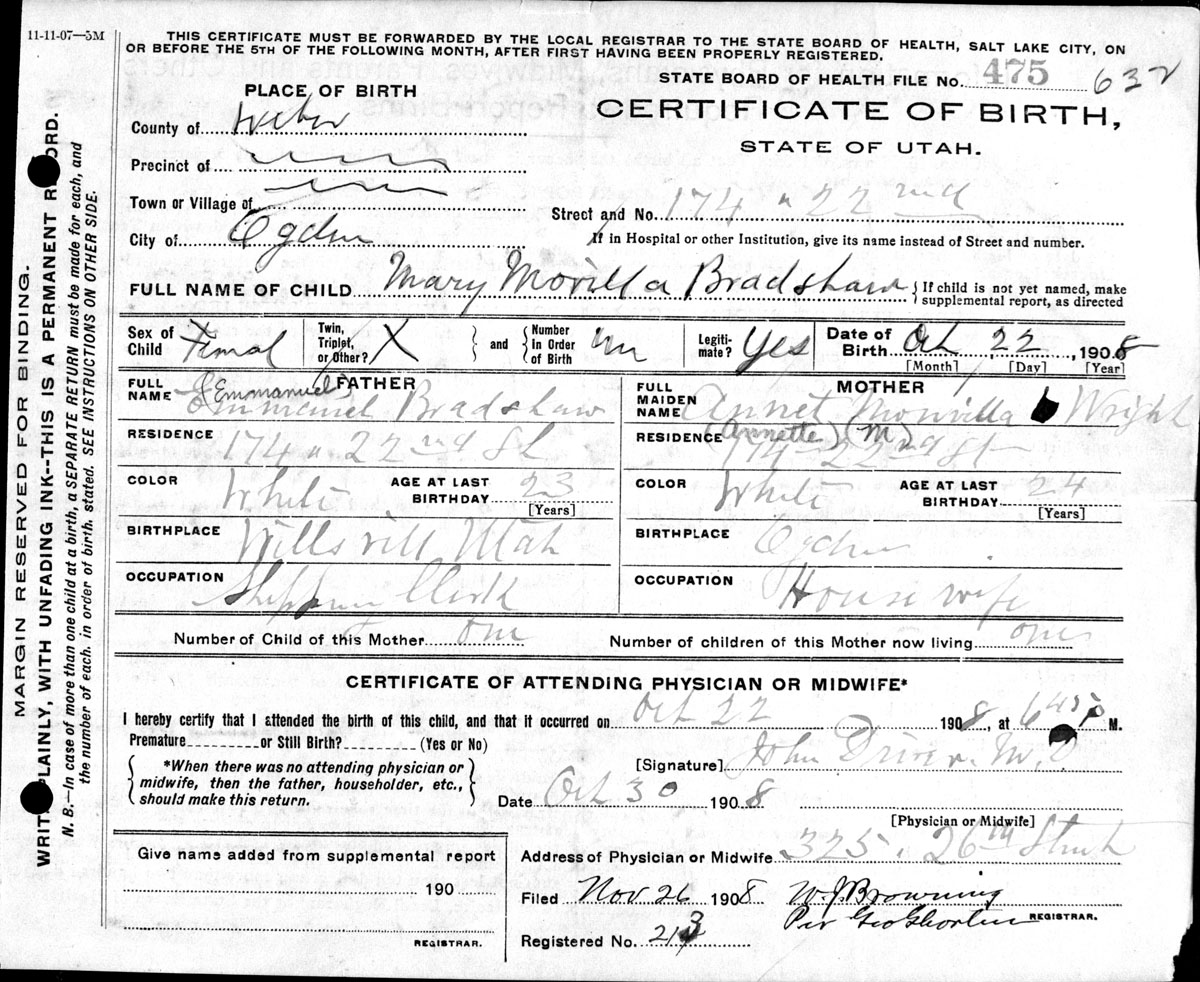 11-11-07—5M
THIS CERTIFICATE MUST BE FORWARDED BY THE LOCAL REGISTRAR TO THE STATE BOARD OF HEALTH, SALT LAKE CITY, ON
OR BEFORE THE 5TH OF THE FOLLOWING MONTH, AFTER FIRST HAVING BEEN PROPERLY REGISTERED.
STATE BOARD OF HEALTH FILE No. 475 632
PLACE OF BIRTH
CERTIFICATE OF BIRTH,
STATE OF UTAH.
County of Weber
Precinct of
Town or Village of
Street and No. 174 22nd
City of Ogden
If in Hospital or other Institution, give its name instead of Street and number.
FULL NAME OF CHILD Mary Morilla Bradshaw { If child is not yet named, make
supplemental report, as directed
Sex of Child Femal
Twin, Triplet, or Other? X } and { Number In Order of Birth
Legiti-mate? Yes
Date of Birth Oct 22, 1908
[Month] [Day] [Year]
FATHER
FULL NAME (Emmanuel) Emmanuel Bradshaw
RESIDENCE 174 22nd St
COLOR White AGE AT LAST BIRTHDAY 23
[Years]
BIRTHPLACE Willsvill Utah
OCCUPATION Shippin Clerk
MOTHER
FULL MAIDEN NAME Annet Morvilla Wright
(Annette) (M)
RESIDENCE 174 22nd St
COLOR White AGE AT LAST BIRTHDAY 24
[Years]
BIRTHPLACE Ogden
OCCUPATION House wife
Number of Child of this Mother one Number of children of this Mother now living one
CERTIFICATE OF ATTENDING PHYSICIAN OR MIDWIFE*
I hereby certify that I attended the birth of this child, and that it occurred on Oct 22 1908, at 645 P M.
Premature or Still Birth? (Yes or No)
{ *When there was no attending physician or
midwife, then the father, householder, etc.,
should make this return. }
[Signature] John Driver, M.D
Date Oct 30 1908
[Physician or Midwife]
Give name added from supplemental report
190
REGISTRAR.
Address of Physician or Midwife 325. 26th Street
Filed Nov 26 1908 W. J. Browning
Per Geo Shorten REGISTRAR.
Registered No. 213
MARGIN RESERVED FOR BINDING.
WRITE PLAINLY, WITH UNFADING INK--THIS IS A PERMANENT RECORD.
N. B.—In case of more than one child at a birth, a SEPARATE RETURN must be made for each, and
the number of each. in order of birth. stated. SEE INSTRUCTIONS ON OTHER SIDE.